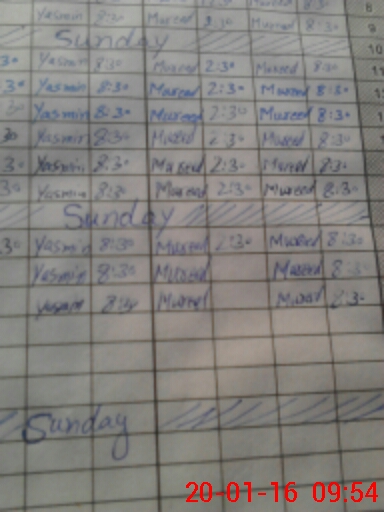 Yasmin 8:30 Mureed 2:30 Mureed 8:30 8
Sunday 9
Yasmin 8:30 Mureed 2:30 Mureed 8:30
30 Yasmin 8:30 Mureed 2:30 Mureed 8:30
30 Yasmin 8:30 Mureed 2:30 Mureed 8:30
30 Yasmin 8:30 Mureed 2:30 Mureed 8:30
30 Yasmin 8:30 Mureed 2:30 Mureed 8:30
30 Yasmin 8:30 Mureed 2:30 Mureed 8:30
Sunday
:30 Yasmin 8:30 Mureed 2:30 Mureed 8:30
Yasmin 8:30 Mureed Mureed 8:30
Yasmin 8:30 Mureed Mureed 8:30
Sunday
20-01-16 09:54